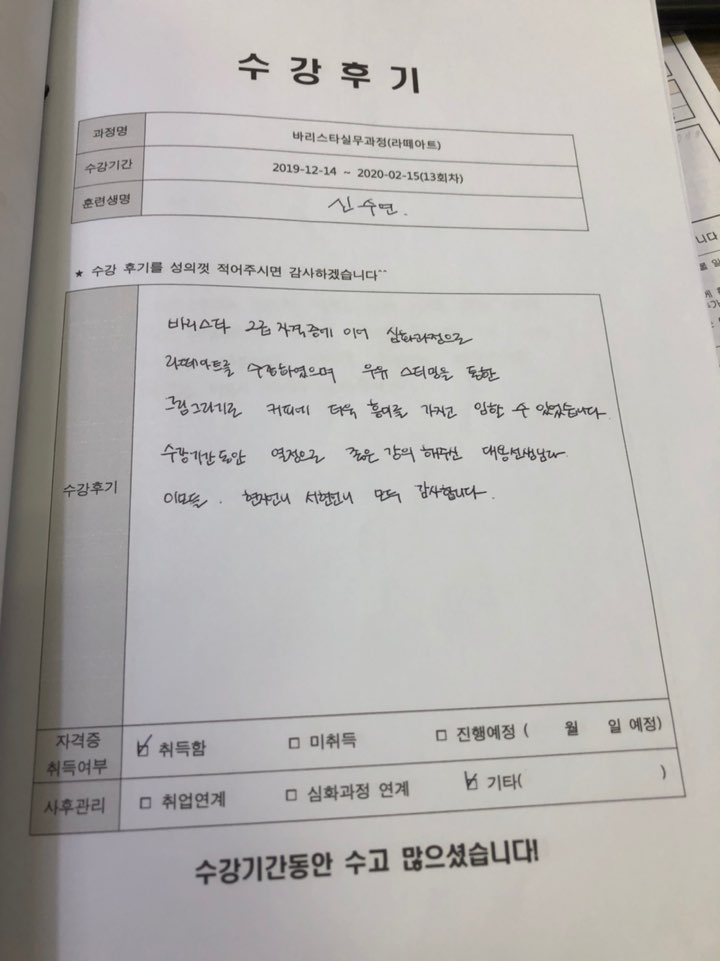 수 강 후 기
과정명 바리스타실무과정(라떼아트)
수강기간 2019-12-14 ~ 2020-02-15(13회차)
훈련생명 신수연.
★ 수강 후기를 성의껏 적어주시면 감사하겠습니다^^
바리스타 2급 자격증에 이어 심화과정으로
라떼아트를 수강하였으며 우유 스티밍을 통한
그림그리기로 커피에 더욱 흥미를 가지고 임할 수 있었습니다.
수강기간동안 열정으로 좋은 강의 해주신 대용선생님과
수강후기
이모들. 현자언니 서현언니 모두 감사합니다.
자격증
취득여부 ☑ 취득함 □ 미취득 □ 진행예정 ( 월 일 예정)
사후관리 □ 취업연계 □ 심화과정 연계 ☑ 기타( )
수강기간동안 수고 많으셨습니다!
니다